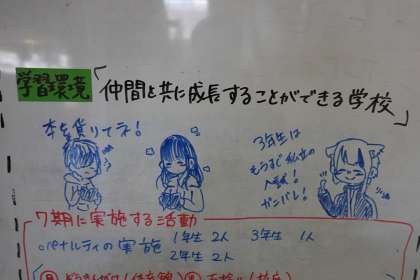 学習環境「仲間と共に成長することができる学校」
本を借りてネ!
3年生は
もうすぐ私立の
入試!
ガンバレ!
7期に実施する活動
○ペナルティの実施 1年生 2人 3年生 1人
2年生 2人